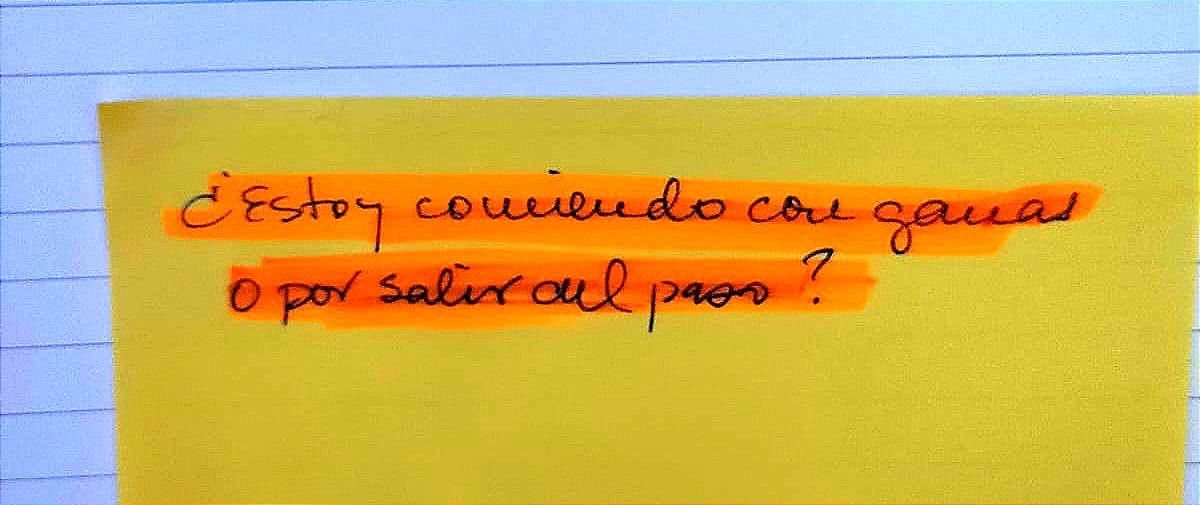 ¿Estoy comiendo con ganas
o por salir del paso?